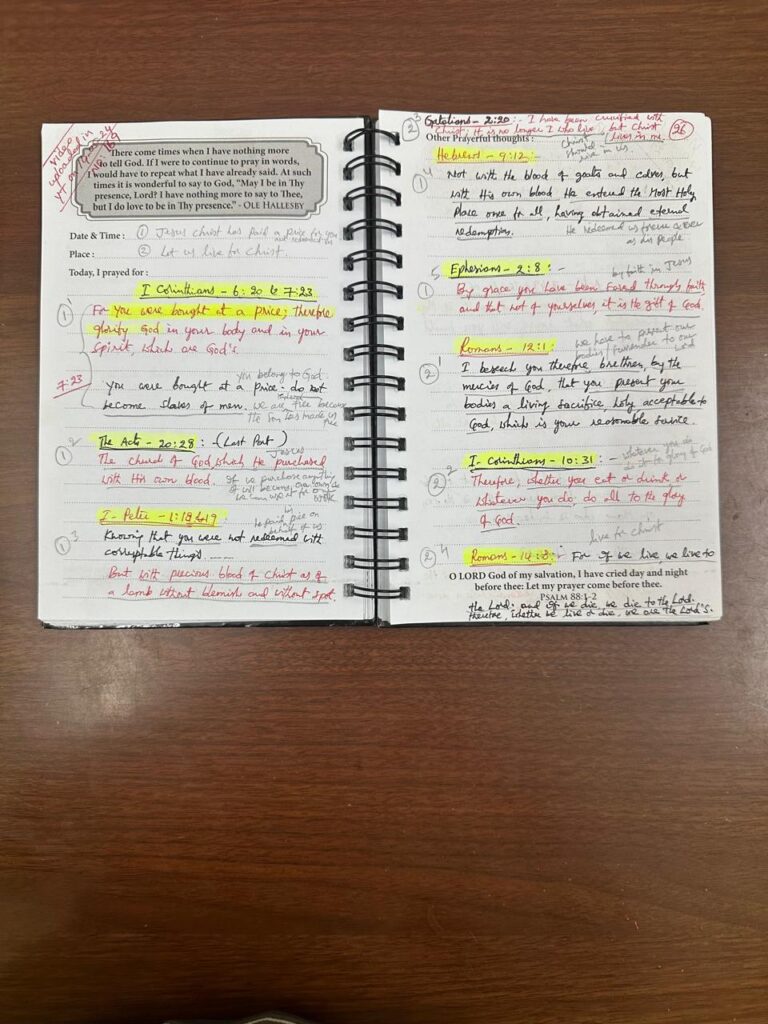 Video
uploaded in
There come times when I have nothing more
to tell God. If I were to continue to pray in words,
I would have to repeat what I have already said. At such
times it is wonderful to say to God, "May I be in Thy
presence, Lord? I have nothing more to say to Thee,
but I do love to be in Thy presence." - OLE HALLESBY
Date & Time : ① Jesus Christ has paid a price for you
Place : ② Let us live for Christ.
Today, I prayed for :
I Corinthians - 6:20 & 7:23
① 1 For you were bought at a price; therefore
glorify God in your body and in your
Spirit, which are God's.
you belong to God
7:23 You were bought at a price - do not
become slaves of men. we are free because
the Son has made us free
The Acts - 20:28 :- (Last Part)
Jesus
① 2 The church of God which He purchased
with His own blood. If we purchase anything
it will become our own
I - Peter - 1:18 & 19 :
① 3 Knowing that you were not redeemed with
corruptable things. ——
But with precious blood of Christ as of
a lamb without blemish and without spot.
② 3 Galatians - 2:20 :- I have been crucified with
Christ; it is no longer I who live, but Christ
lives in me.
26
Other Prayerful thoughts :
Christ should live in us
Hebrews - 9:12 :-
① 4 Not with the blood of goats and calves, but
with His own blood He entered the Most Holy
Place once for all, having obtained eternal
redemption.
He redeemed us
as his people
5 Ephesians - 2:8 : -
by faith in Jesus
① By grace you have been saved through faith
and that not of yourselves, it is the gift of God.
Romans - 12:1 :
we have to present our
bodies surrender to our
Lord
② 1 I beseech you therefore, brethren, by the
mercies of God, that you present your
bodies a living sacrifice, holy acceptable to
God, which is your reasonable service.
I - Corinthians - 10:31 : -
whatever you do
do it for glory of God
② 2 Therefore, whether you eat or drink or
whatever you do, do all to the glory
of God.
live for Christ
② 4 Romans - 14:8 :- For if we live, we live to
O LORD God of my salvation, I have cried day and night
before thee: Let my prayer come before thee.
PSALM 88:1-2
the Lord: and if we die, we die to the Lord.
therefore, whether we live or die, we are the Lord's.